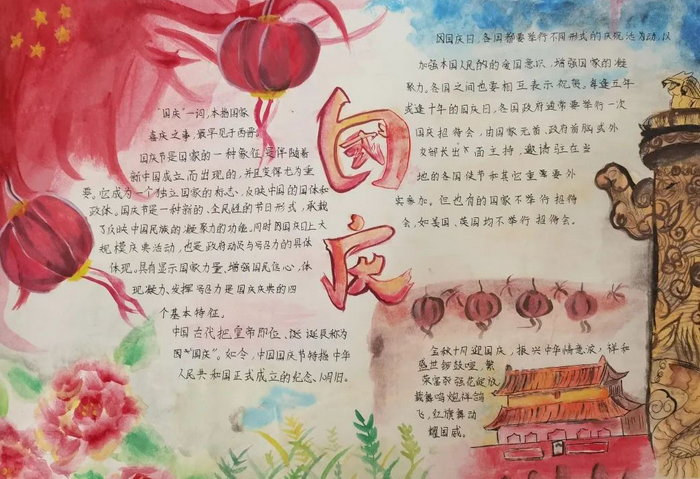 国庆
"国庆"一词,本指国家
喜庆之事,最早见于西晋。
国庆节是国家的一种象征,是伴随着
新中国成立而出现的,并且变得尤为重
要。它成为一个独立国家的标志,反映中国的国体和
政体。国庆节是一种新的、全民性的节日形式,承载
了反映中国民族的凝聚力的功能。同时国庆日上大
规模庆典活动,也是政府动员与号召力的具体
体现。具有显示国家力量、增强国民信心,体
现凝力、发挥号召力是国庆庆典的四
个基本特征。
中国古代把皇帝即位、诞辰称为
"国庆"。如今,中国国庆节特指中华
人民共和国正式成立的纪念
国庆日,各国都要举行不同形式的庆祝活动,以
加强本国人民的爱国意识,增强国家的凝
聚力。各国之间也要相互表示祝贺。每逢五年
或逢十年的国庆日,各国政府通常要举行一次
国庆招待会,由国家元首、政府首脑或外
交部长出面主持,邀请驻在当
地的各国使节和其它重要外
宾参加。但也有的国家不举行招待
会,如美国、英国均不举行招待会。
金秋十月迎国庆,振兴中华情意浓,祥和
盛世锣鼓喧,繁
荣富强花绽放,
载舞鸣炮伴鸽
飞,红旗舞动
耀国威。